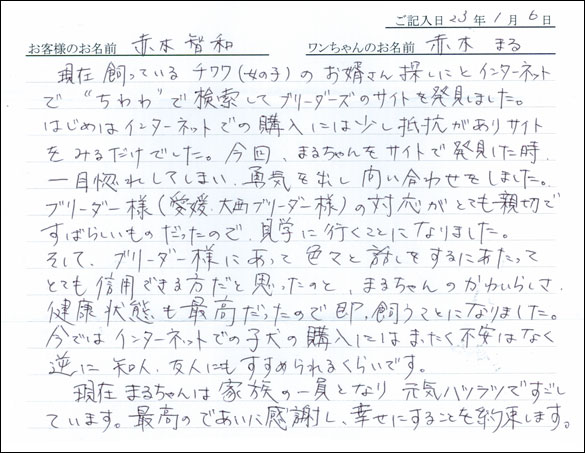 ご記入日 23 年 1 月 6 日
お客様のお名前 赤木 智和 ワンちゃんのお名前 赤木 まる
現在 飼っている チワワ(女の子) の お婿さん 探しにと インターネット
で “ちわわ” で 検索して ブリーダーズのサイトを発見しました。
はじめは インターネットでの 購入には少し 抵抗がありサイト
をみるだけでした。今回、まるちゃんをサイトで発見した時、
一目惚れしてしまい、勇気を出し 向い合わせをしました。
ブリーダー様(愛媛、大西ブリーダー様)の対応がとても親切で
すばらしいものだったので、見学に行くことになりました。
そして、ブリーダー様にあって 色々と 話しをするにあたって
とても 信用できる方だと思ったのと、まるちゃんの かわいらしさ、
健康 状態も 最高だったので 即、飼うことになりました。
今では インターネットでの子犬の購入には まったく不安はなく
逆に 知人、友人にも すすめられるくらいです。
現在 まるちゃんは 家族の一員となり 元気ハツラツですごし
ています。最高のであいに感謝し、幸せにすることを約束します。